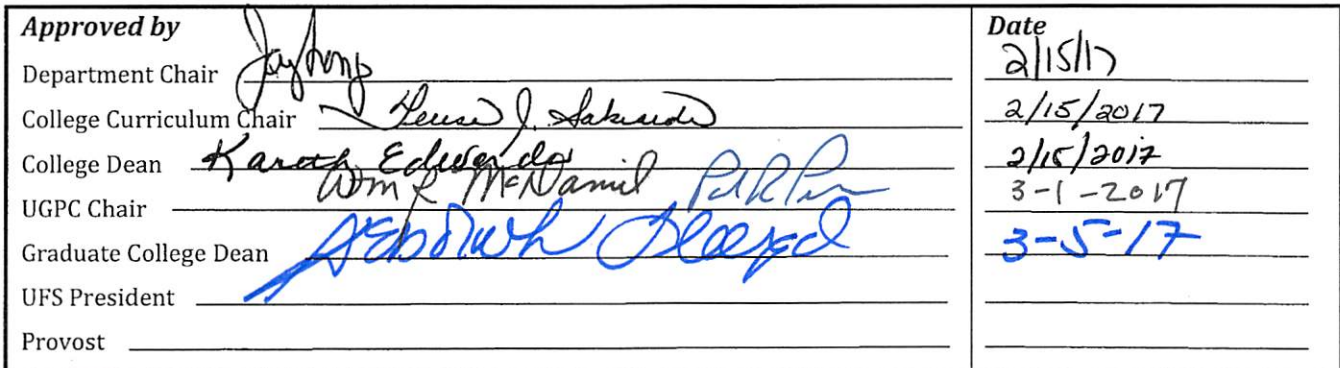 Approved by Date
Department Chair 2/15/17
College Curriculum Chair J. 2/15/2017
College Dean 2/15/2017
UGPC Chair Wm R McDaniel 3-1-2017
Graduate College Dean Deborah 3-5-17
UFS President
Provost